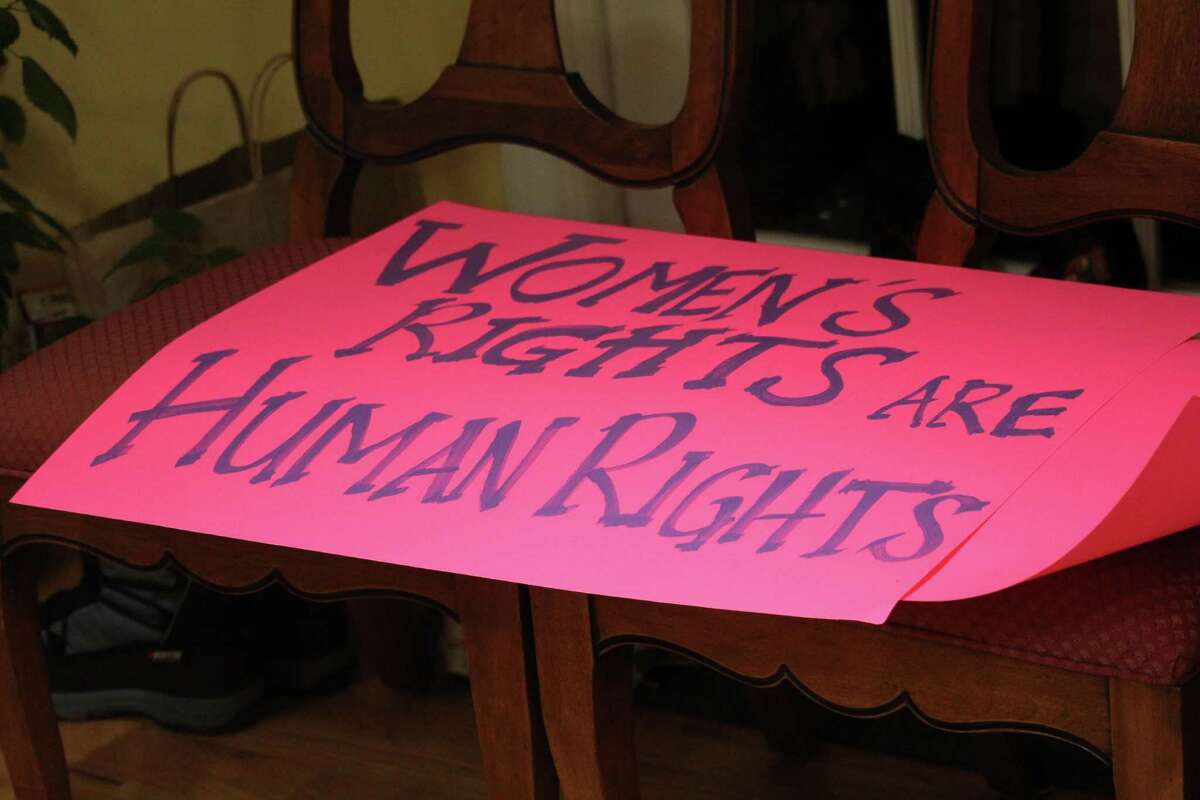 WOMEN'S
RIGHTS ARE
HUMAN RIGHTS